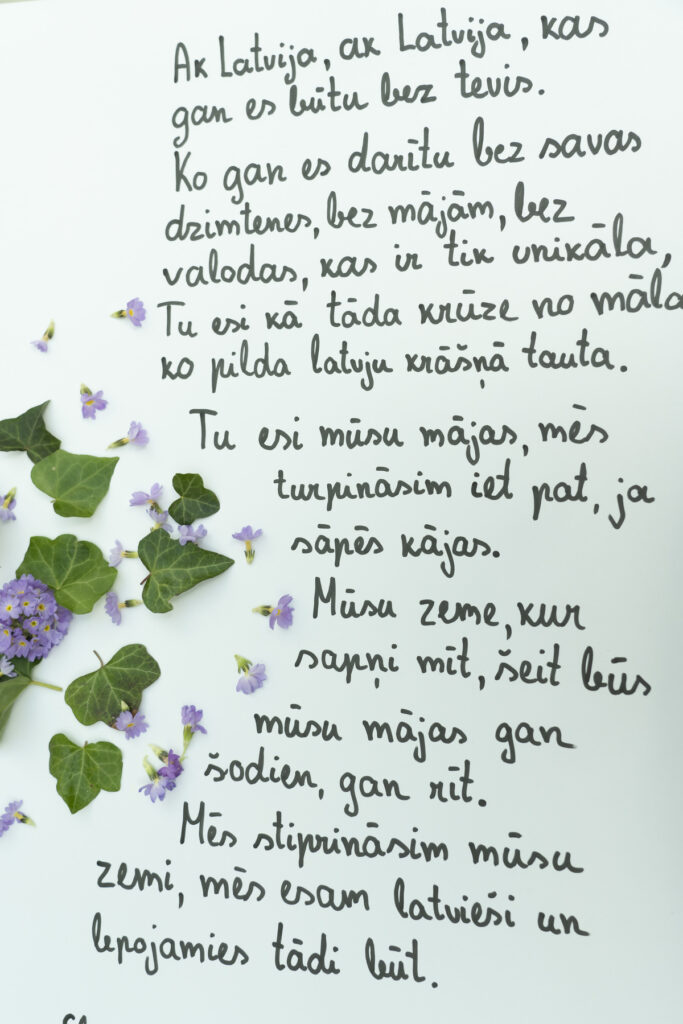 Ak Latvija, ak Latvija, kas
gan es būtu bez tevis.
Ko gan es darītu bez savas
dzimtenes, bez mājām, bez
valodas, kas ir tik unikāla,
Tu esi kā tāda krūze no māla
ko pilda latvju krāšņā tauta.
Tu esi mūsu mājas, mēs
turpināsim iet pat, ja
sāpēs kājas.
Mūsu zeme, kur
sapņi mīt, šeit būs
mūsu mājas gan
šodien, gan rīt.
Mēs stiprināsim mūsu
zemi, mēs esam latvieši un
lepojamies tādi būt.